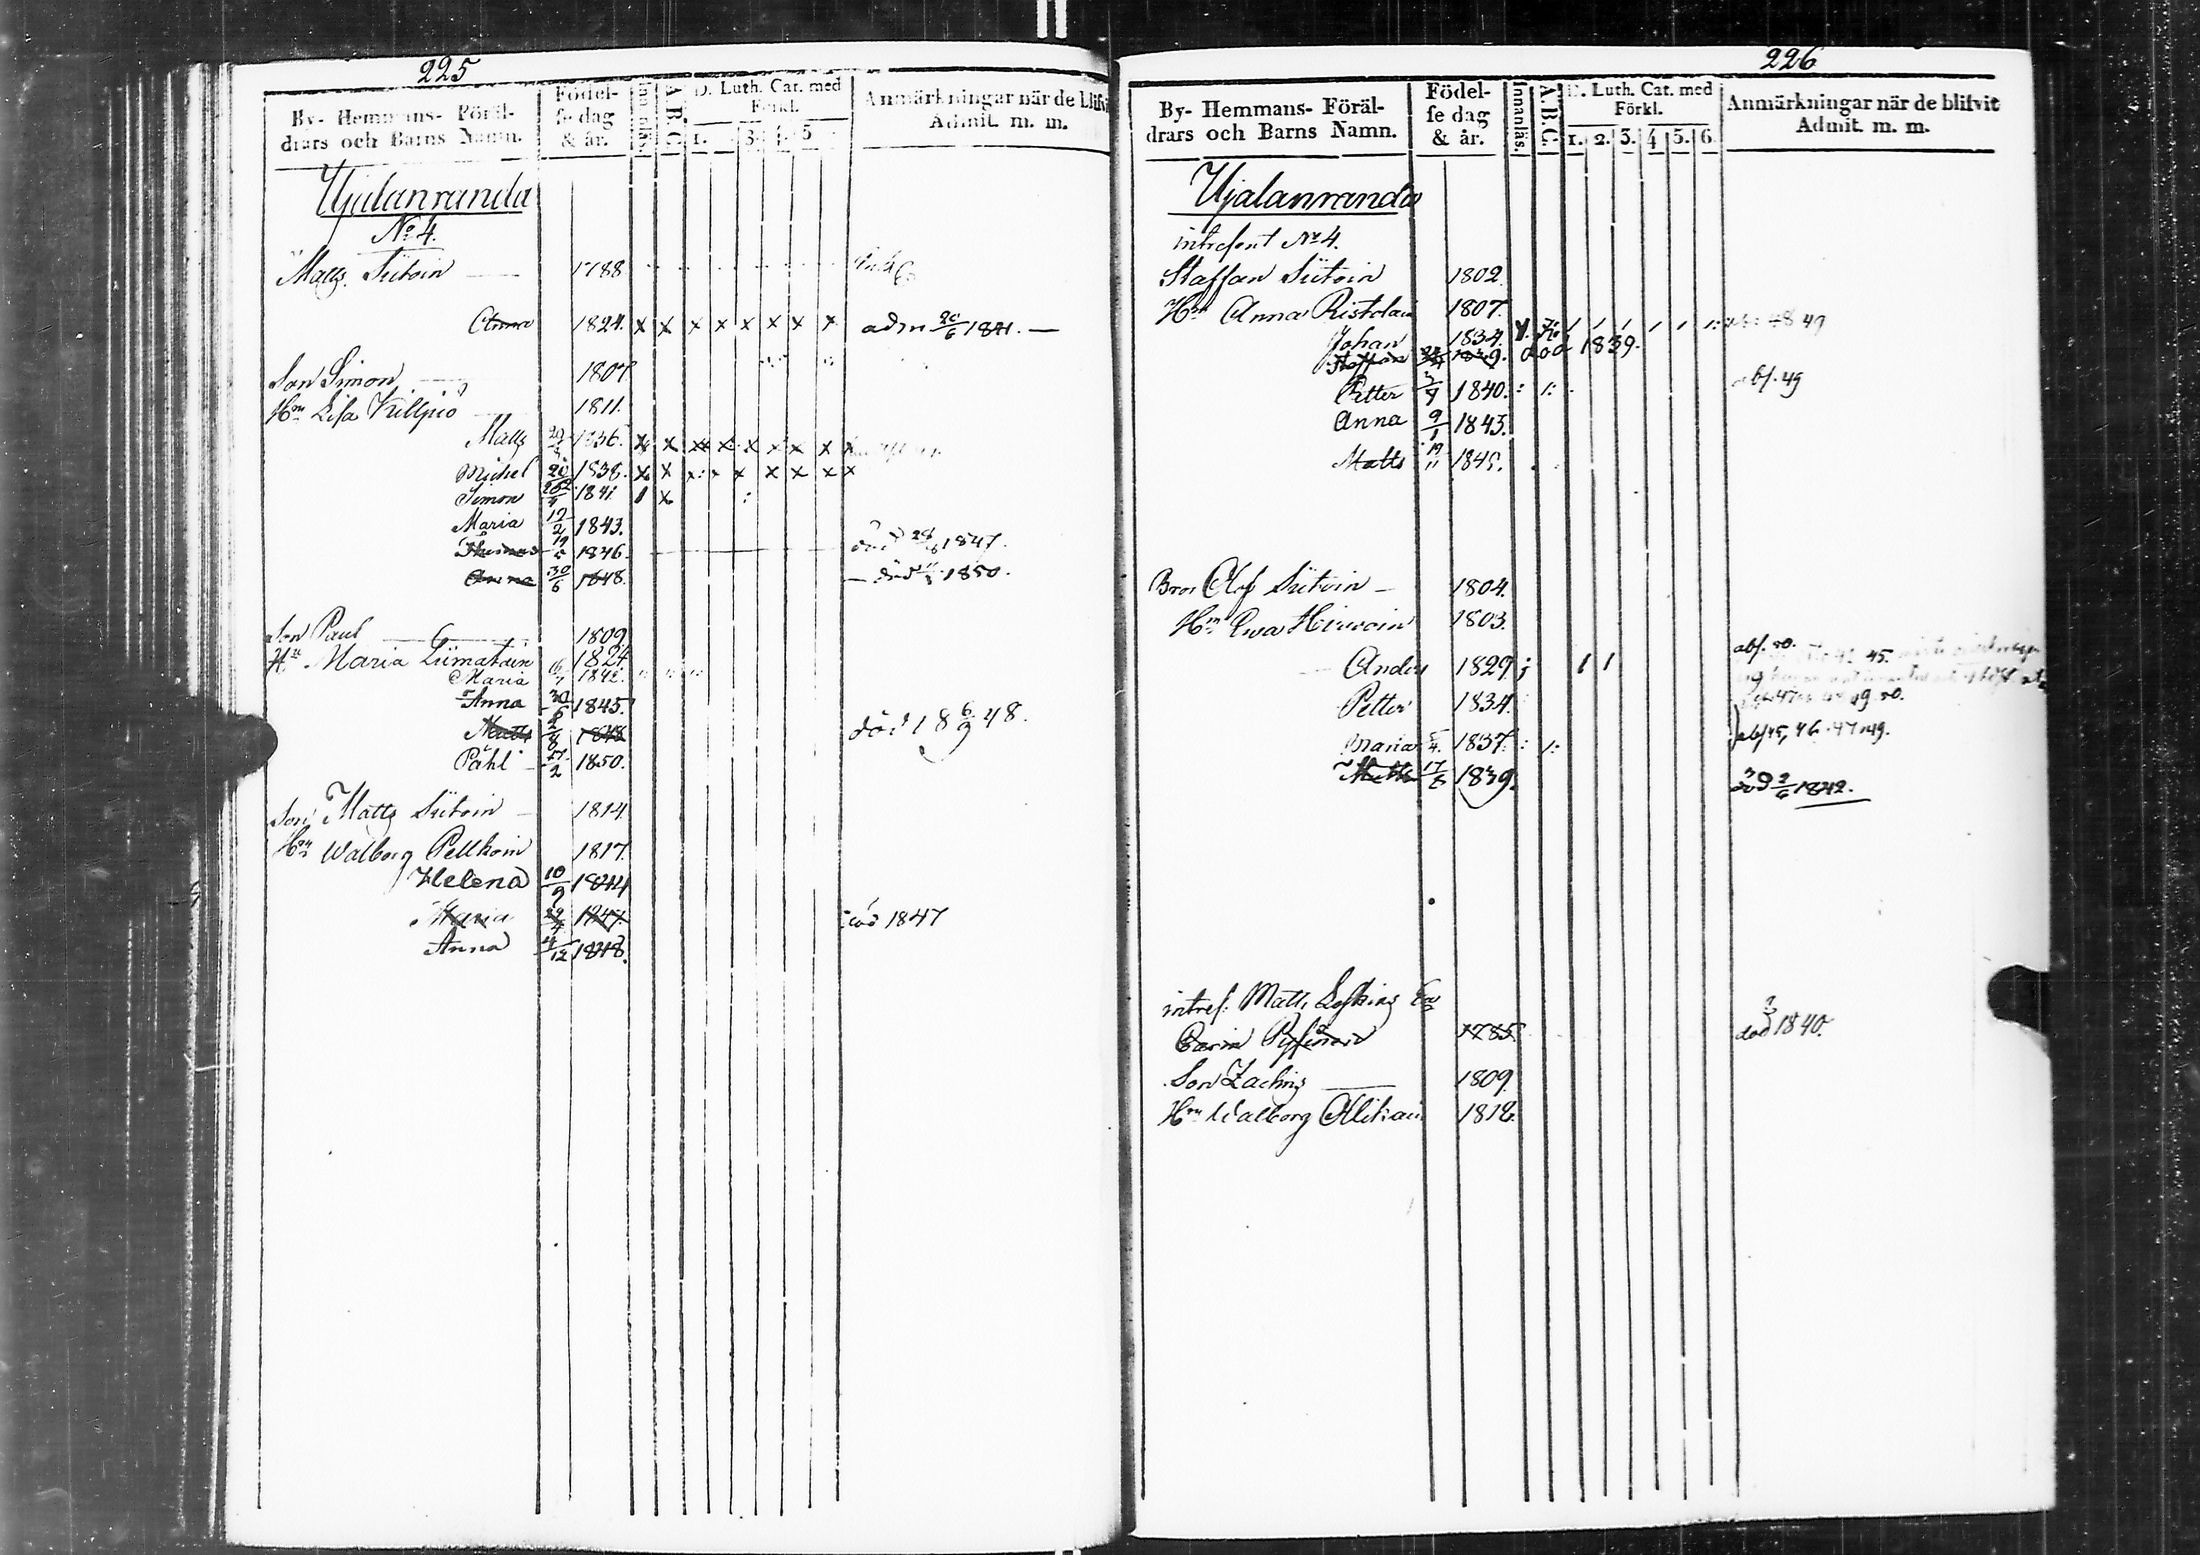 225
By- Hemmans- Föräl-
drars och Barns Namn.
Födel-
se dag
& år.
A.B.C.
D. Luth. Cat. med
Förkl.
1. 3. 4. 5
Anmärkningar när de blifvit
Admit. m. m.
Ujalanranda
No 4.
Matts Siitoin 1788
Anna 1824. x x x x x x x x adm 20/6 1841. —
Son Simon 1807
Hru Lisa Kilpiö 1811.
Matts 1836. x x x x x x x x x
Michel 20 1838. x x x x x x x x
Simon 1841. 1 x
Maria 12/2 1843.
Thomas 19 1846. död 1847.
Anna 30/6 1848. död 1850.
Son Paul 1809
Hu Maria Liimatain 1824.
Maria 1842.
Anna 1845.
Matts 1848 död 18 6/9 48.
Påhl 27/2 1850.
Son Matts Siitoin 1814.
Hru Walborg Pellikoin 1817.
Helena 10/9 1844
Maria 29/4 1847. död 1847
Anna 12 1848.
226
By- Hemmans- Föräl-
drars och Barns Namn.
Födel-
se dag
& år.
Innanläs.
A.B.C.
D. Luth. Cat. med
Förkl.
1. 2. 3. 4 5. 6.
Anmärkningar när de blifvit
Admit. m. m.
Ujalanranda
intressent No 4.
Staffan Siitoin 1802.
Hru Anna Ristolain 1807.
Johan 1834. 49
Staffan 1839. död 1839.
Petter 1840. abs. 49
Anna 9/1 1843.
Matts 19/11 1845.
Bror Olof Siitoin — 1804.
Hru Ewa Hirwoin 1803.
Anders 1829. 1 1 abs. 50.
45.
49 50.
Petter 1834.
Maria 5/4. 1837. abs 45, 46. 47 49.
Matts 17 1839. död 2/6 1842.
intres. Matts Enk
Carin 1785. död 1840.
Son Zachris 1809.
Hru Walborg 1818.